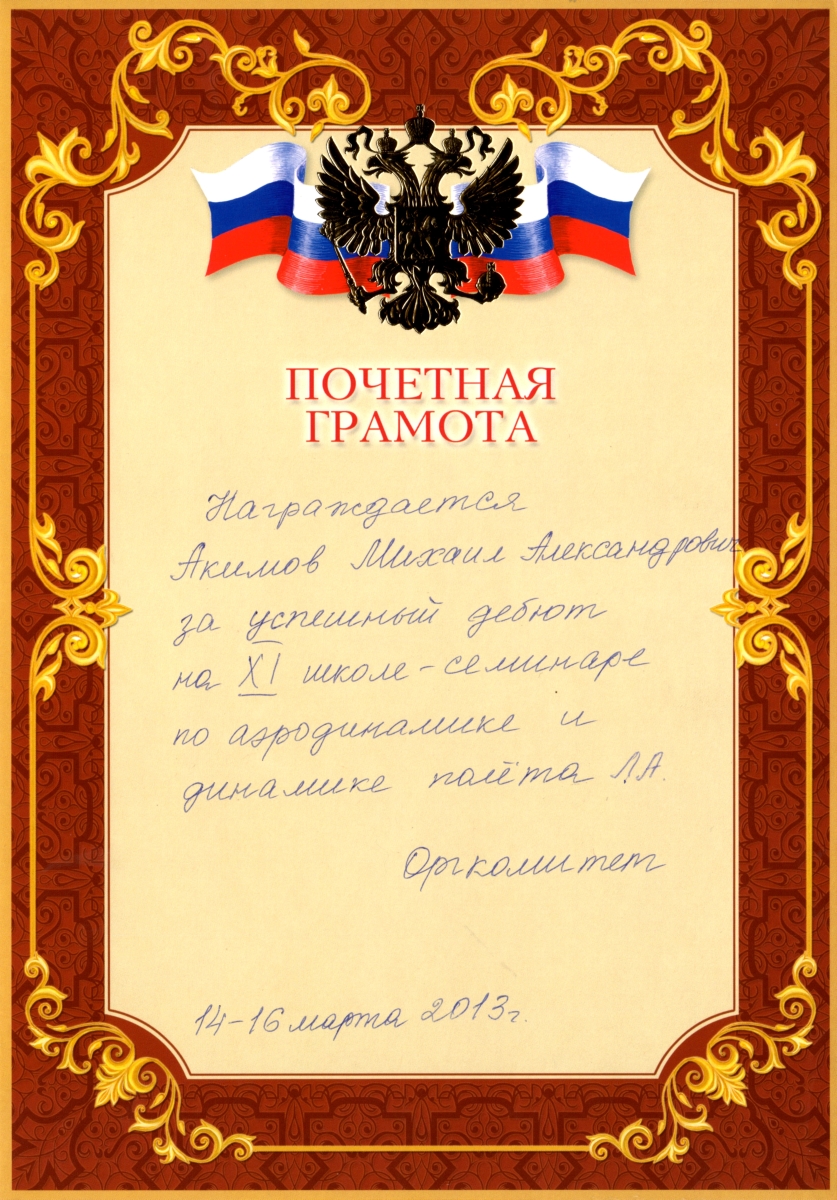 ПОЧЕТНАЯ
ГРАМОТА
Награждается
Акимов Михаил Александрович
за успешный дебют
на XI школе-семинаре
по аэродинамике и
динамике полёта Л.А.
Оргкомитет
14-16 марта 2013г.